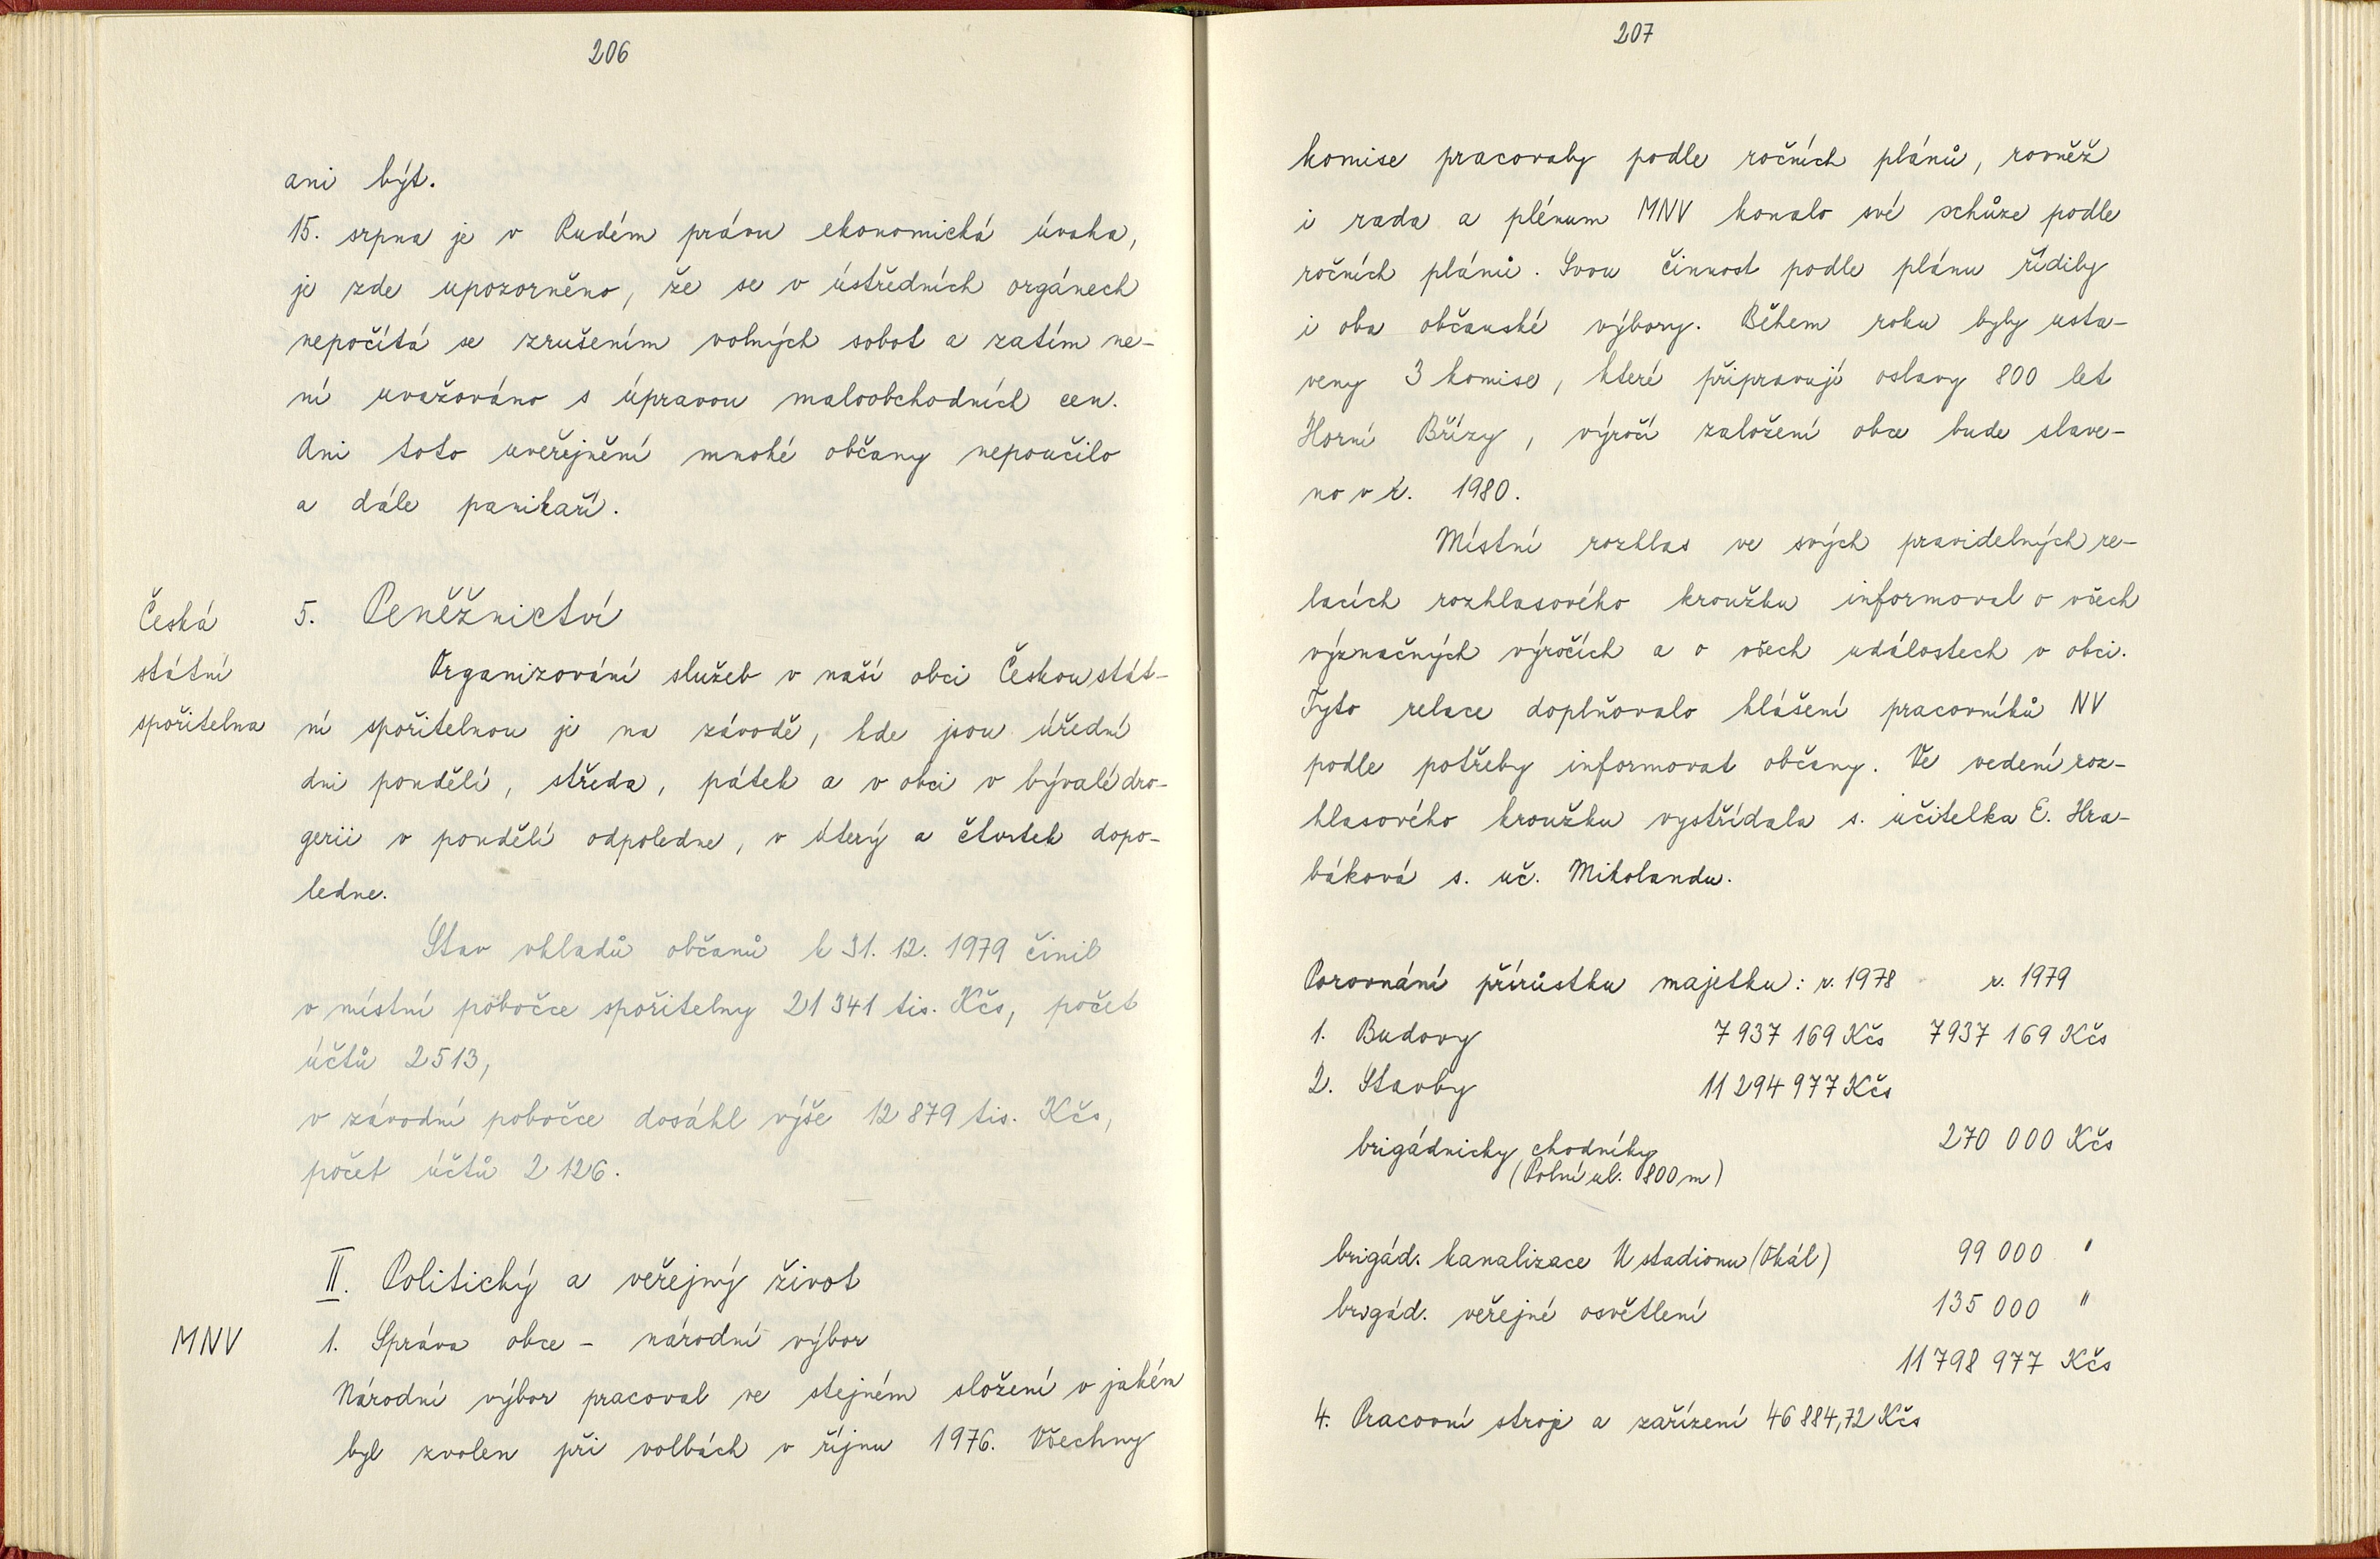 206
ani být.
15. srpna je v Rudém právu ekonomická úvaha,
je zde upozorněno, že se v ústředních orgánech
nepočítá se zrušením volných sobot a zatím ne-
ní uvažováno s úpravou maloobchodních cen.
Ani toto uveřejnění mnohé občany nepoučilo
a dále panikaří.
Česká
státní
spořitelna
5. Peněžnictví
Organizování služeb v naší obci Českou stát-
ní spořitelnou je na závodě, kde jsou úřední
dni pondělí, středa, pátek a v obci v bývalé dro-
gerii v pondělí odpoledne, v úterý a čtvrtek dopo-
ledne.
Stav vkladů občanů k 31. 12. 1979 činil
v místní pobočce spořitelny 21 341 tis. Kčs, počet
účtů 2513,
v závodní pobočce dosáhl výše 12 879 tis. Kčs,
počet účtů 2 126.
II. Politický a veřejný život
MNV
1. Správa obce - národní výbor
Národní výbor pracoval ve stejném složení v jakém
byl zvolen při volbách v říjnu 1976. Všechny
207
komise pracovaly podle ročních plánů, rovněž
i rada a plénum MNV konalo své schůze podle
ročních plánů. Svou činnost podle plánu řídily
i oba občanské výbory. Během roku byly usta-
veny 3 komise, které připravují oslavy 800 let
Horní Břízy, výročí založení obce bude slave-
no v r. 1980.
Místní rozhlas ve svých pravidelných re-
lacích rozhlasového kroužku informoval o všech
význačných výročích a o všech událostech v obci.
Tyto relace doplňovalo hlášení pracovníků NV
podle potřeby informovat občany. Ve vedení roz-
hlasového kroužku vystřídala s. učitelka E. Hra-
báková s. uč. Mikolandu.
Porovnání přírůstku majetku: r. 1978 r. 1979
1. Budovy 7 937 169 Kčs 7937 169 Kčs
2. Stavby 11 294 977 Kčs
brigádnicky chodníky 270 000 Kčs
(Polní ul. 800 m)
brigád. kanalizace U stadionu (Okál) 99 000 "
brigád. veřejné osvětlení 135 000 "
11 798 977 Kčs
4. Pracovní stroje a zařízení 46 884,72 Kčs